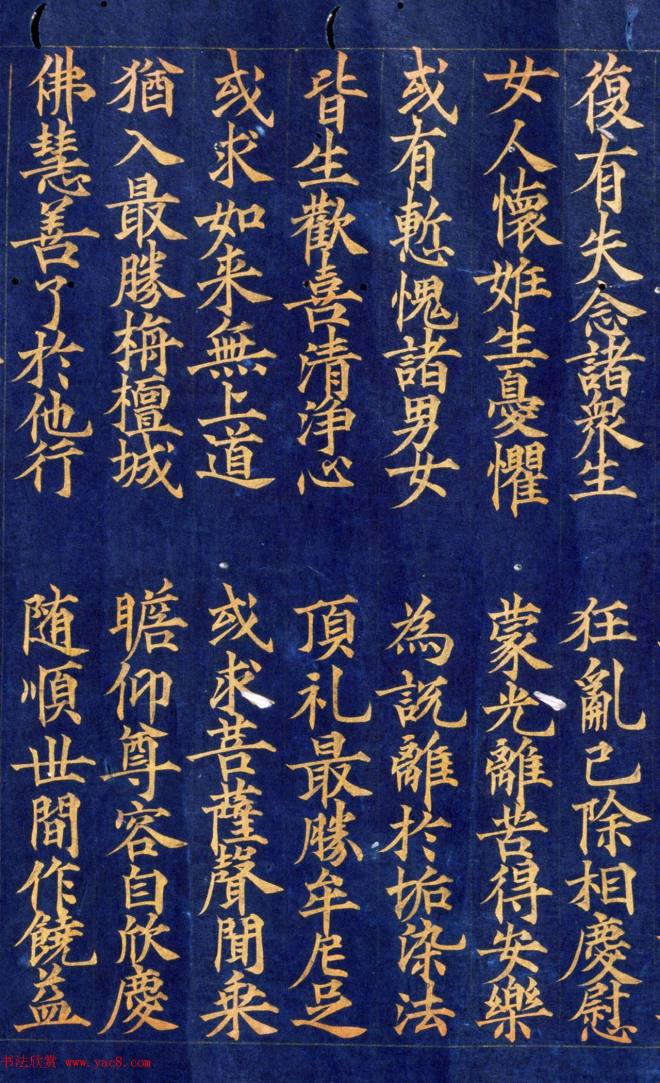 復有失念諸衆生　狂亂已除相慶慰
女人懷姙生憂懼　蒙光離苦得安樂
或有慙愧諸男女　為説離於垢染法
皆生歡喜清淨心　頂礼最勝牟尼足
或求如来無上道　或求菩薩聲聞乘
猶入最勝栴檀城　瞻仰尊容自欣慶
佛慧善了於他行　随順世間作饒益
书法欣赏 www.yac8.com